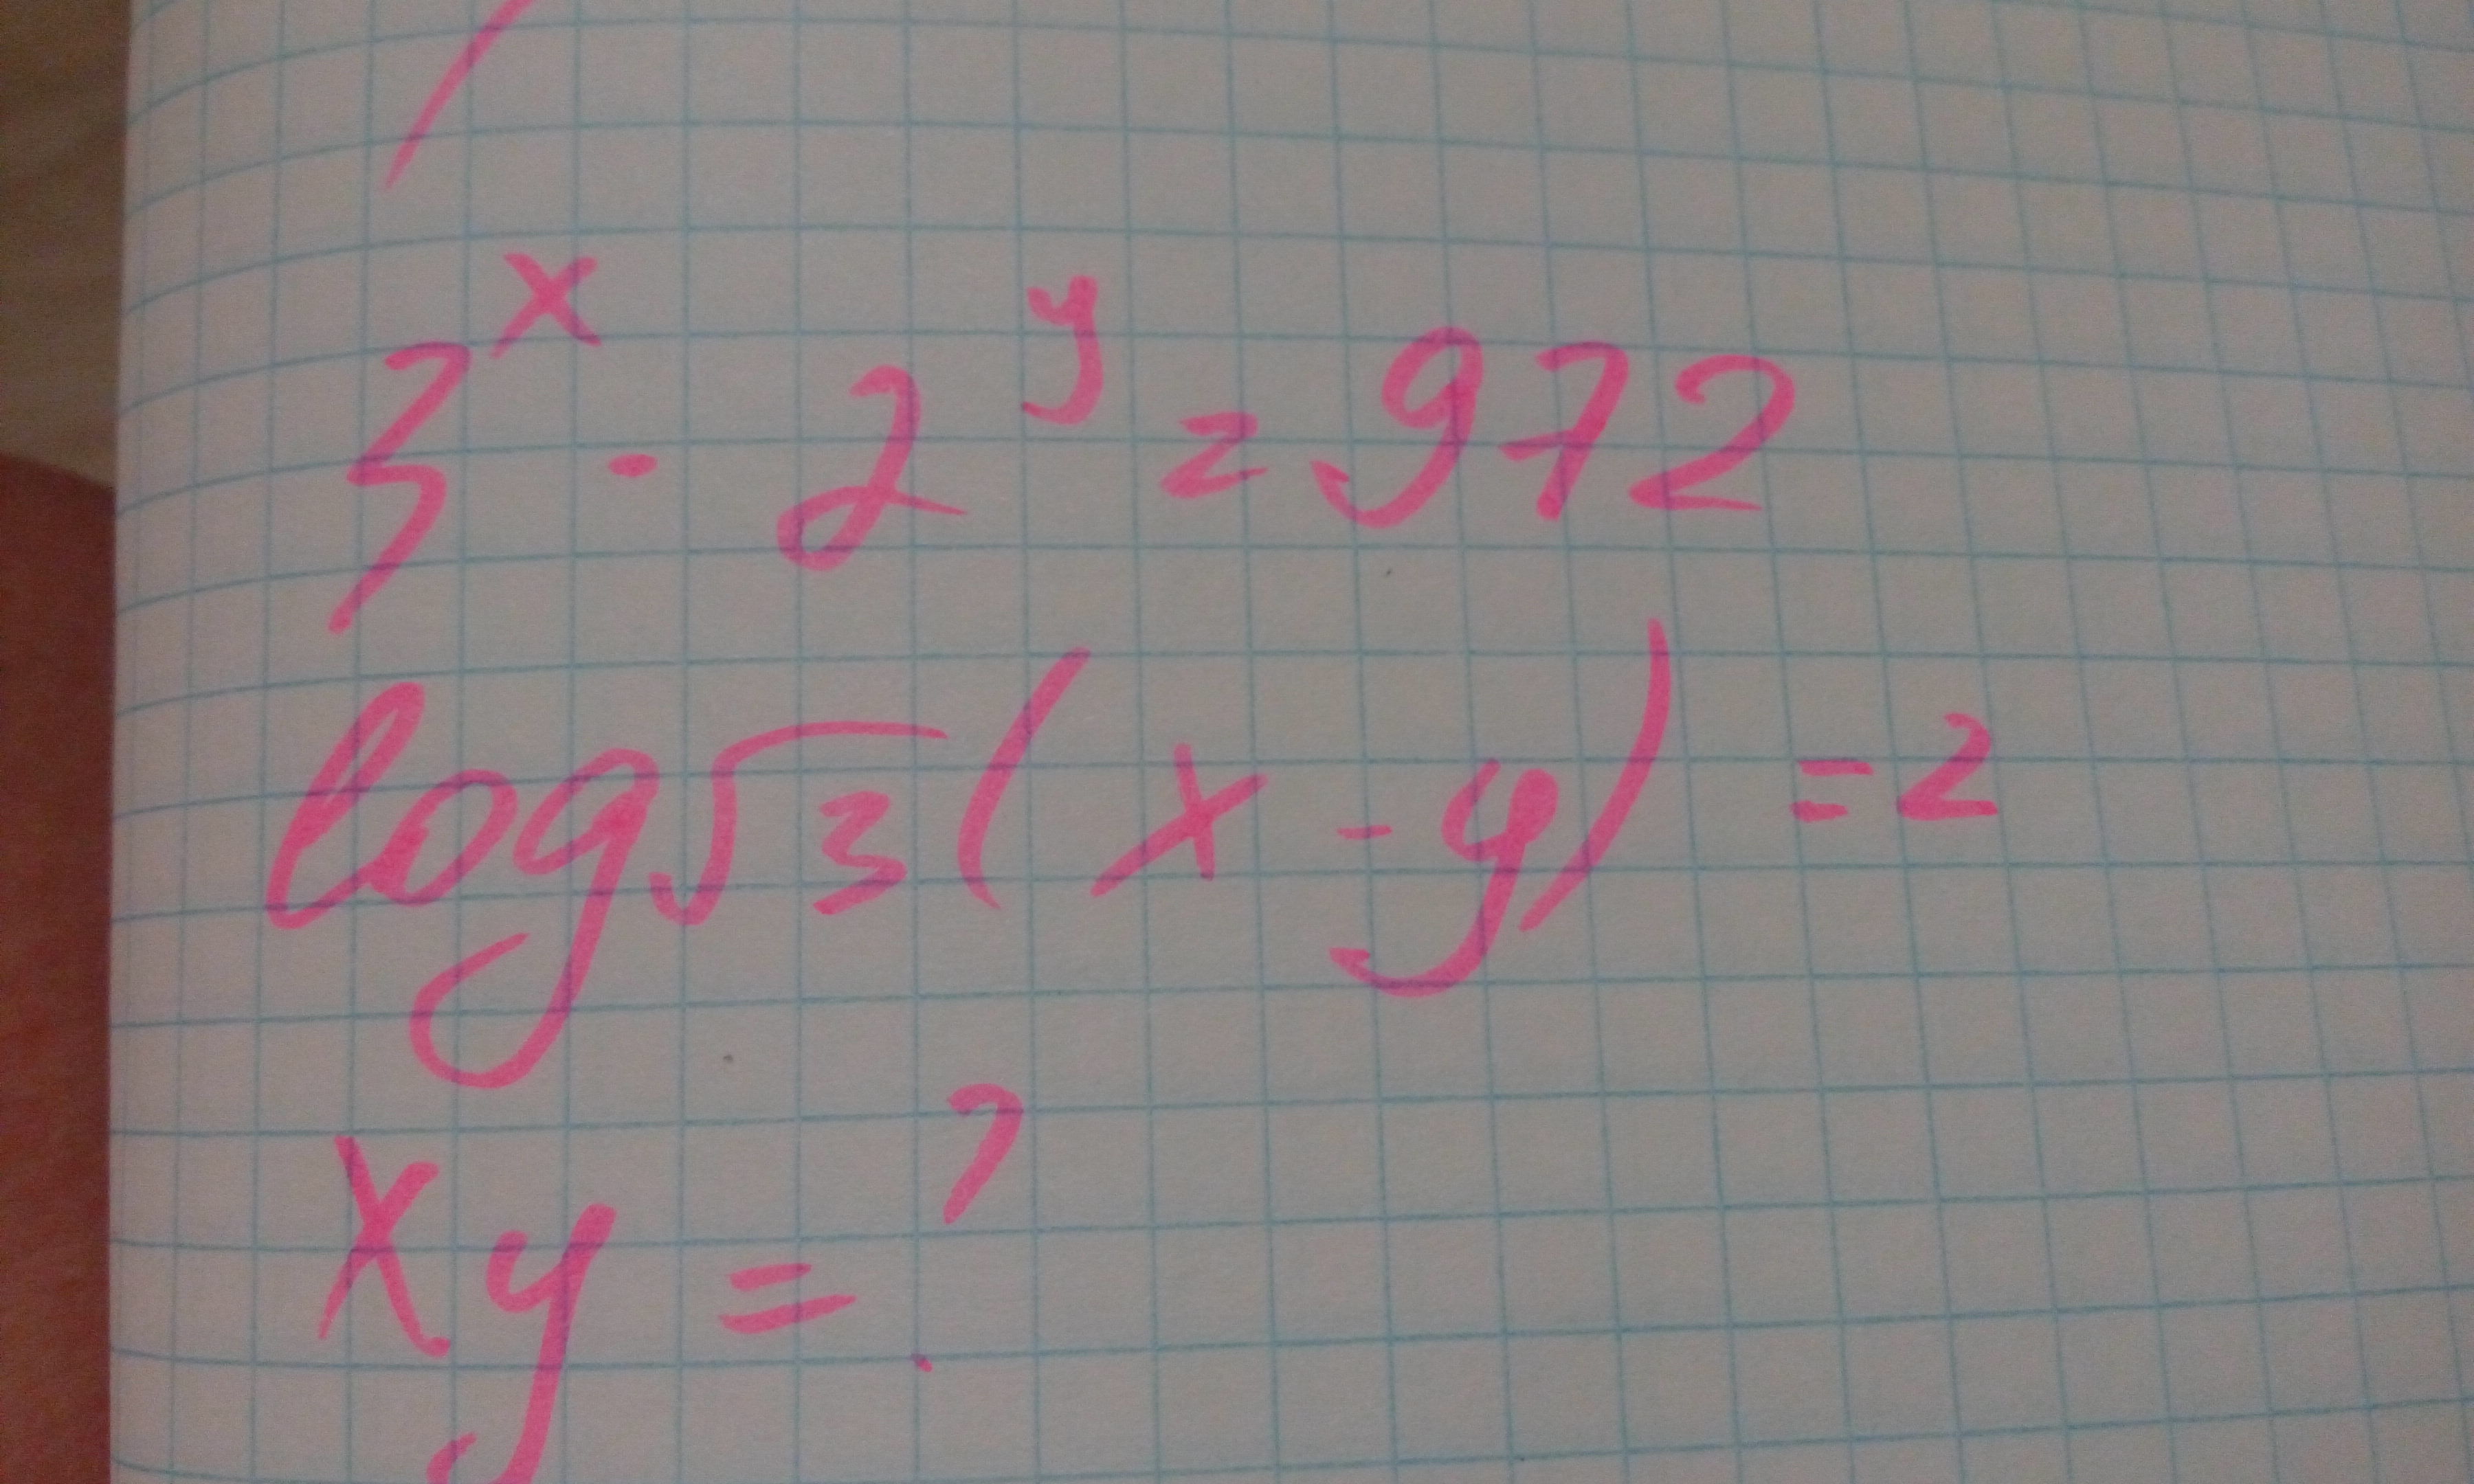 3^x · 2^y = 972
log√3 (x - y) = 2
xy = ?